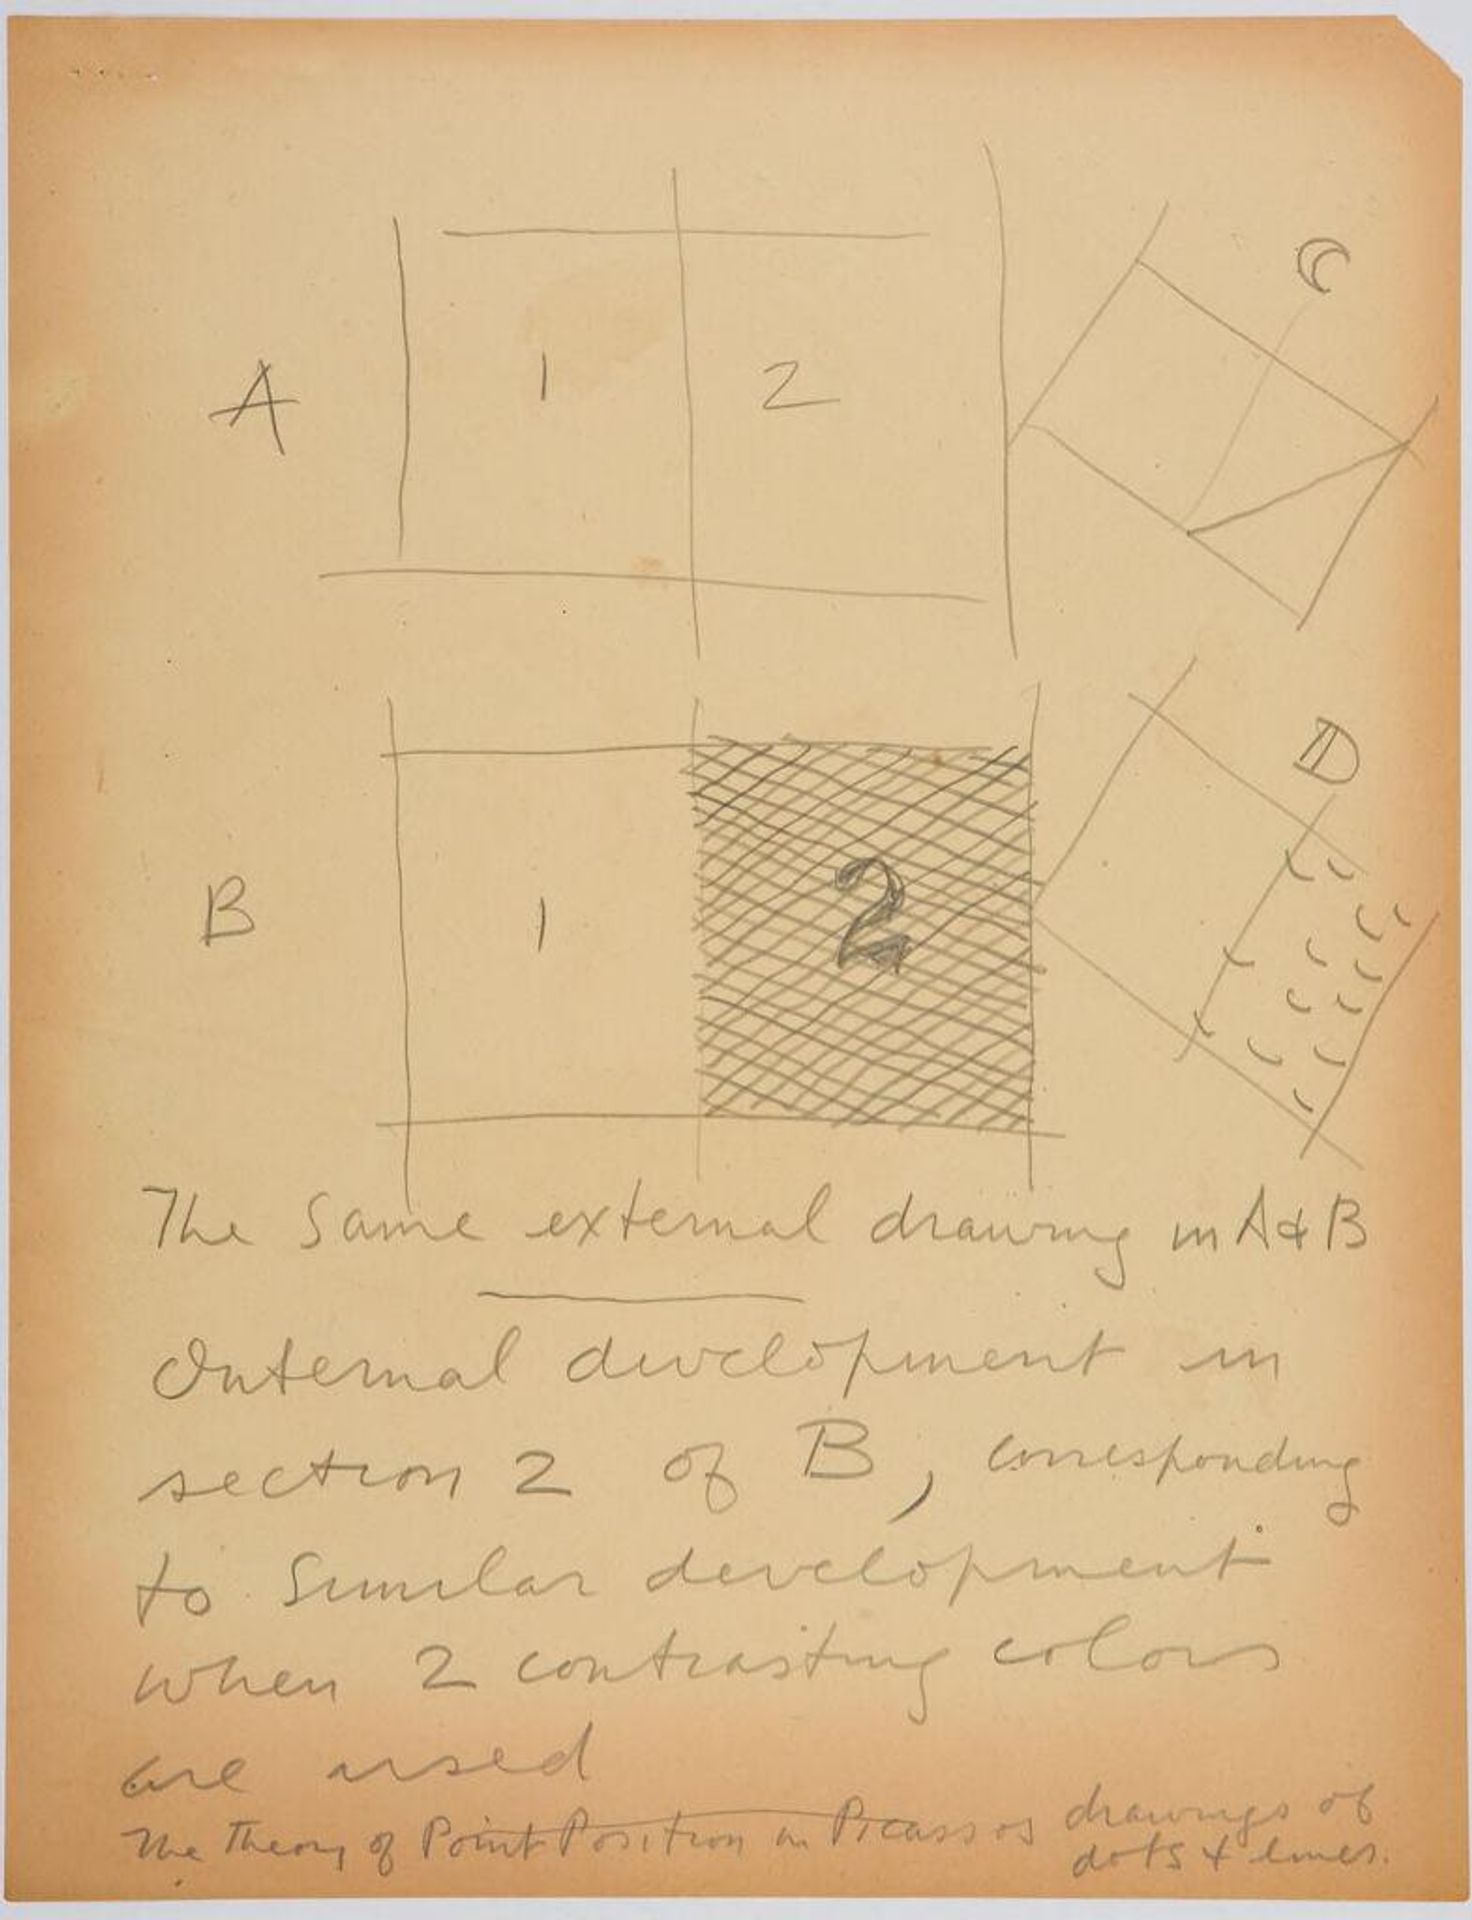 A
1
2
C
B
1
2
D
The Same external drawing in A & B
Internal development in
section 2 of B, corresponding
to Similar development
when 2 contrasting colors
are used
The Theory of Point Position in Picassos drawings of
dots & lines.